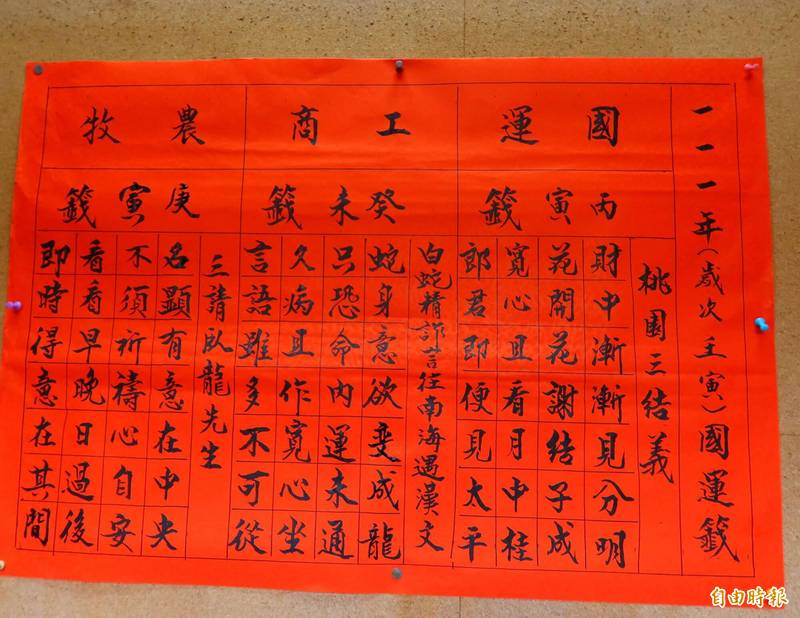 一一一年(歲次壬寅)國運籤
國運
丙寅籤
桃園三結義
財中漸漸見分明
花開花謝結子成
寬心且看月中桂
郎君即便見太平
工商
癸未籤
白蛇精詐言往南海遇漢文
蛇身意欲變成龍
只恐命內運未通
久病且作寬心坐
言語雖多不可從
農牧
庚寅籤
三請臥龍先生
名顯有意在中央
不須祈禱心自安
看看早晚日過後
即時得意在其間
自由時報